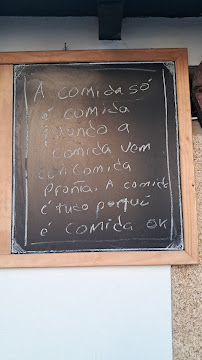 A comida só
é comida
quando a
comida vem
com comida
pronta. A comida
é tudo porque
é comida ok